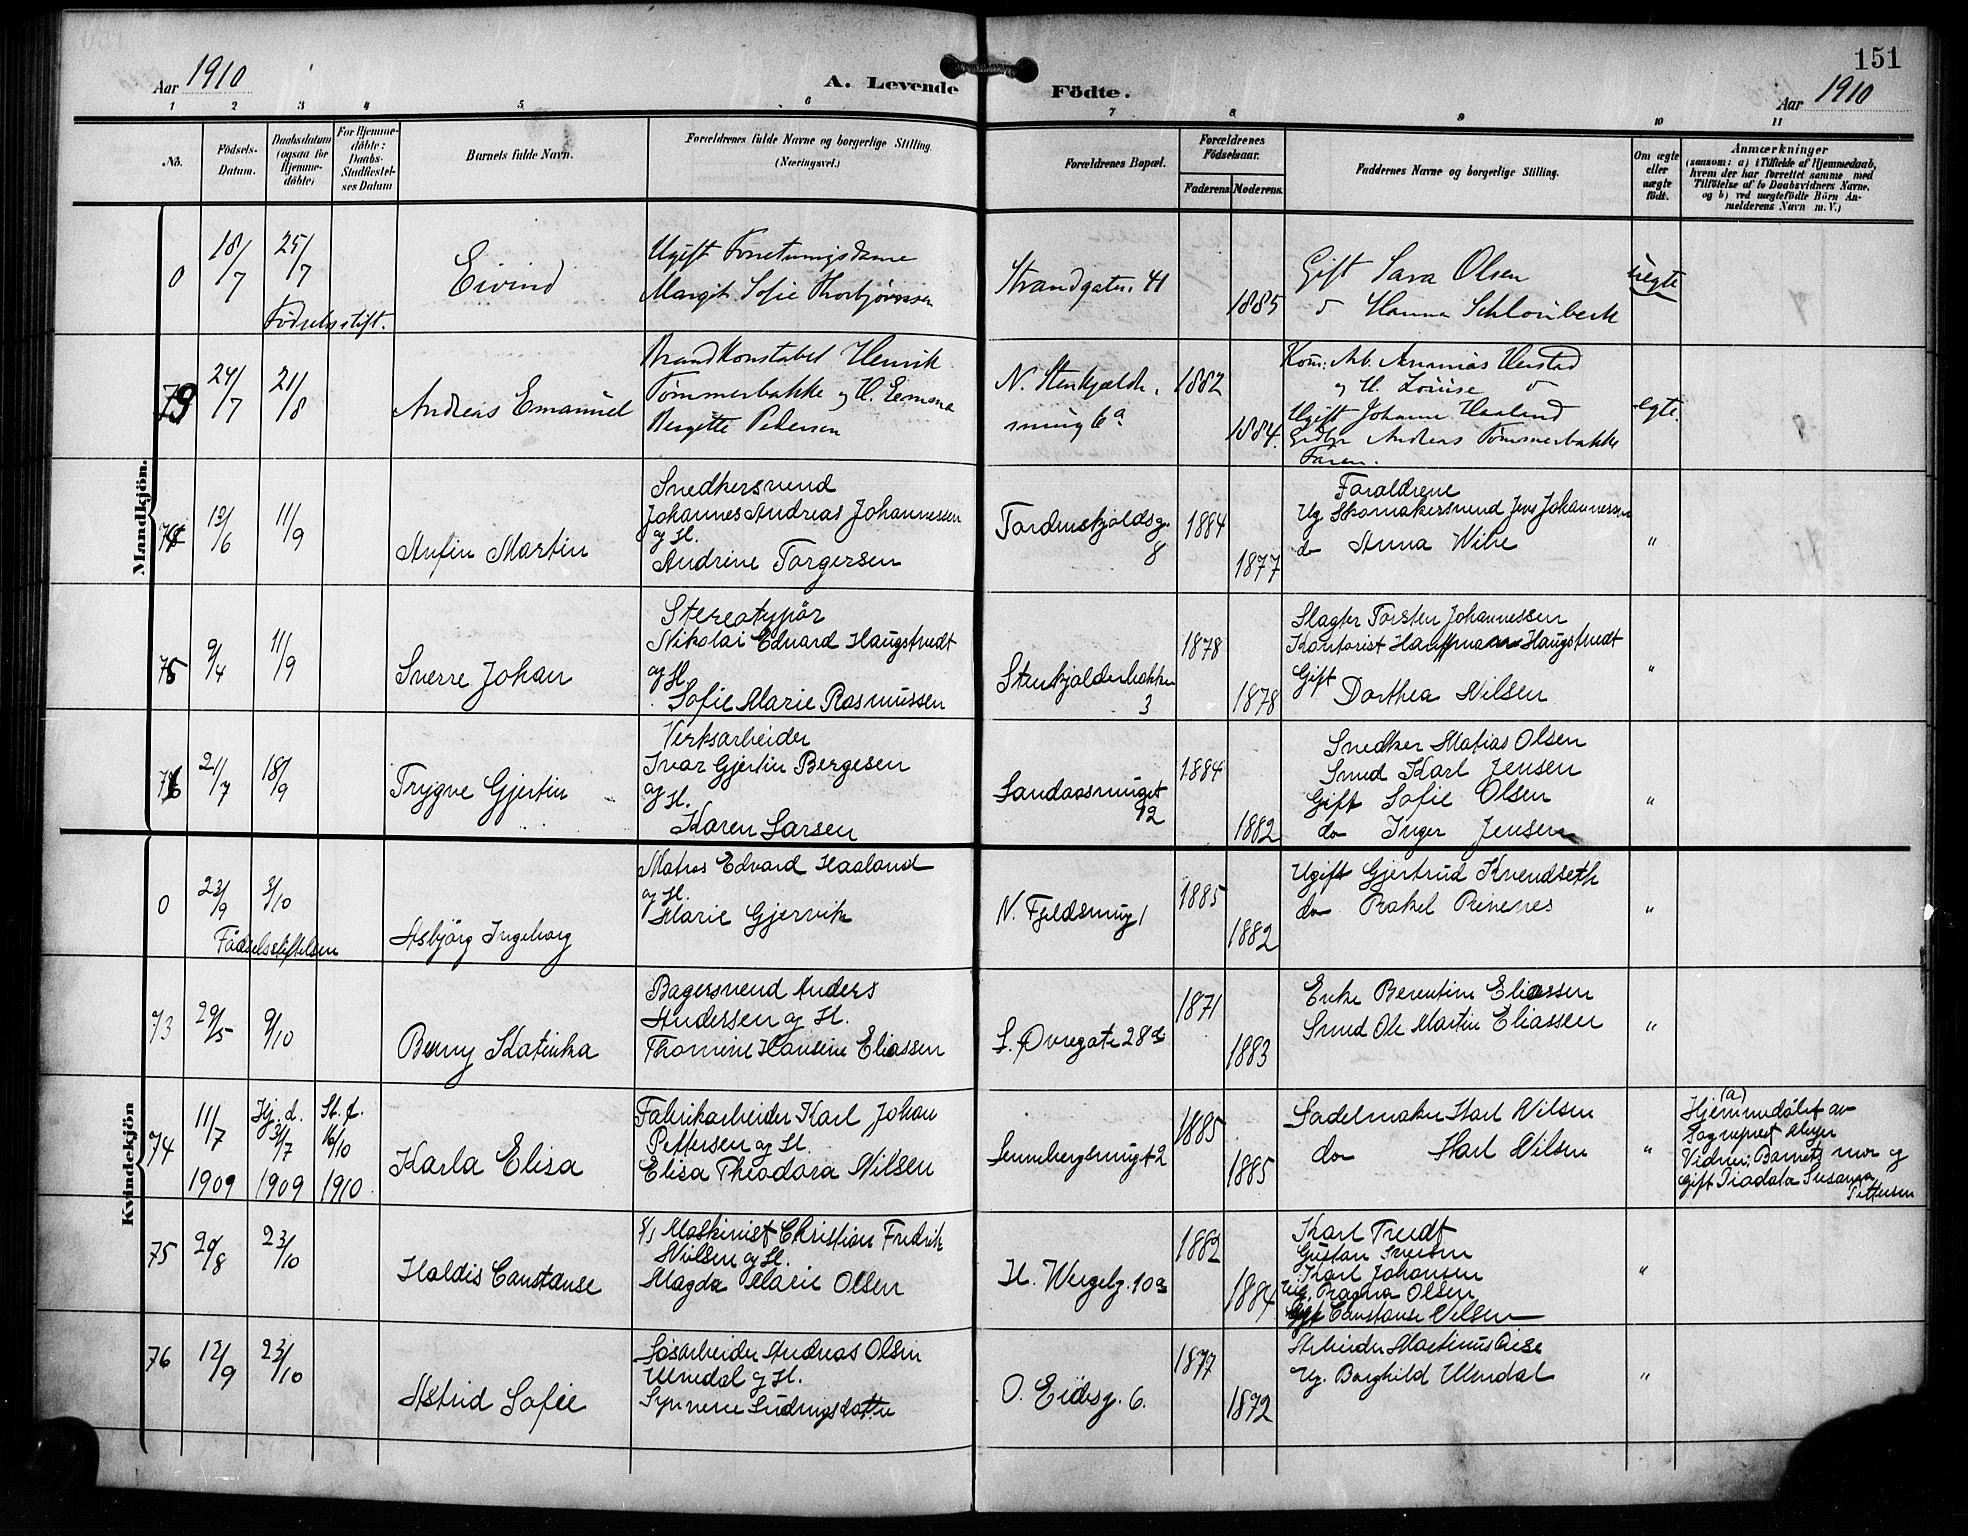 151
Aar 1910
A. Levende Födte.
Aar 1910
1 2 3 4 5 6 7 8 9 10 11
No.
Födsels-
Datum.
Daabsdatum
(ogsaa for
Hjemme-
döbte)
For Hjemme-
döbte:
Daabs-
Stadfæstel-
ses Datum
Barnets fulde Navn.
Forældrenes fulde Navne og borgerlige Stilling.
(Næringsvei.)
Forældrenes Bopæl.
Forældrenes
Födselsaar.
Faderens. Moderens.
Faddernes Navne og borgerlige Stilling.
Om ægte
eller
uægte
födt.
Anmærkninger
(saasom: a) i Tilfælde af Hjemmedaab,
hvem der har forrettet samme med
Tilföielse af to Daabsvidners Navne,
og b) ved uægtefödte Börn An-
melderens Navn m. V.)
Mandkjön.
0
18/7
25/7
Födselsstift.
Eivind
Ugift Forretningsdame
Margit Sofie Thorbjörnsen
Strandgaten 41
1885
Gift Sara Olsen
d Hanna Schlönbeck
uegte
73
24/7
21/8
Andreas Emanuel
Brandkonstabel Henrik
Tømmerbakke og H. Emma
Bergitte Pedersen
N. Stenkjeldr.
smug 6a
1882
1884
Kom. Arb. Ananias Herstad
og H. Louise d
Ugift Johanne Haaland
Andreas Tømmerbakke
Faren.
egte.
74
13/6
11/9
Anfin Martin
Snedkersvend
Johannes Andreas Johannessen
og H.
Andrine Torgersen
Tordenskjoldsg.
8
1884
1877
Forældrene
Ug. Skomakersvend Jens Johannessen
do Anna Wibe
"
75
9/4
11/9
Sverre Johan
Stereotypör
Nikolai Edvard Haugstvedt
og H.
Sofie Marie Rasmussen
Stenkjelderbakken
3
1878
1878
Slagter Torsten Johannessen
Kontorist Hauffmann Haugstvedt
Gift Dorthea Nilsen
"
76
21/7
18/9
Trygve Gjertin
Verksarbeider
Ivar Gjertin Bergesen
og H.
Karen Larsen
Sandaassmuget
12
1884
1882
Snedker Matias Olsen
Smed Karl Jensen
Gift Sofie Olsen
do Inger Jensen
"
Kvindekjön
0
23/9
3/10
Födselsstiftelsen
Asbjörg Ingeborg
Matros Edvard Haaland
og H.
Marie Gjervik
N. Fjeldsmug 1
1885
1882
Ugift Gjertrud Kvendseth
do Rakel Rinenes
"
73
29/5
9/10
Benny Katinka
Bagersvend Anders
Andersen og H.
Thomine Hansine Eliassen
S. Øvregate 28
1871
1883
Enke Berentine Eliassen
Smed Ole Martin Eliassen
"
74
11/7
1909
Hj. d.
31/7
1909
St. f.
16/10
1910
Karla Elisa
Fabrikarbeider Karl Johan
Pettersen og H.
Elisa Theodora Nilsen
Sennebergsmuget 2
1885
1885
Sadelmaker Karl Nilsen
do Karl Nilsen
"
(a)
Hjemmedöbt av
Sogneprest Meyer
Vidner: Barnets mor og
Gift Susanna
Pettersen
75
29/8
23/10
Haldis Constanse
S/s Maskinist Christian Fredrik
Nilsen og H.
Magda Marie Olsen
H. Wergelg. 10a
1882
1884
Karl Tvedt
Gustav Iversen
Karl Johansen
Ug. Ragna Olsen
Gift Constanse Nilsen
"
76
12/9
23/10
Astrid Sofie
Løsarbeider Andreas Olsen
Ulvedal og H.
Synneve Sjurdingsdatter
O. Eidesg. 6.
1877
1872
Arbeider Martinus Øiese
Ug. Borghild Ulvedal
"